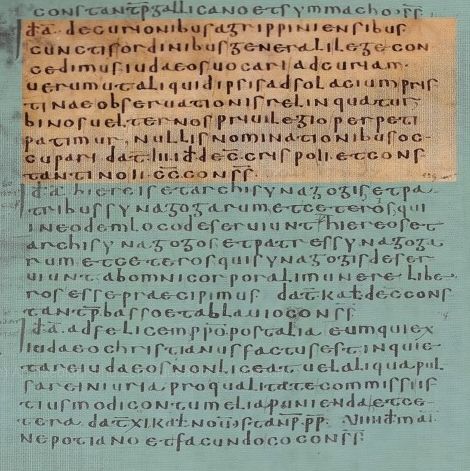 constantp̄gallicanoetsymmachoconss̄
id̄a decurionibusagrippiniensibus
cunctisordinibusgeneralilegecon
cedimusiudaeosuocariadcuriam.
uerumutaliquidipsisadsolaciumpris
tinaeobseruationisrelinquatur
binosuelternospriuilegioperpeti
patimur, nullisnominationibusoc
cupari dat. iii id̄ dec̄ crispo ii. etcons
tantino ii c̄c̄ conss̄.
id̄a. hiereisetarchisynagogisetpa
tribussynagogarumetceterosqui
ineodemlocodeseruiunt hiereoset
archisynagogosetpatressynagoga
rumetceterosquisynagogisdeser
uiuntabomnicorporalimunerelibe
rosessepraecipimus dat kal dec̄ cons
tantp̄ bassoetablauioconss̄
id̄a. adfelicem pp̄o. post alia eumquiex
iudaeochristianusfactusestinquie
tareiudaeosnonliceatuelaliquapul
sareiniuria proqualitatecommissis
tiusmodicontumeliapuniendaetce
tera dat xi kal nou stanp̄. pp̄. uiiii d mai
nepotiano etfacundocoss̄